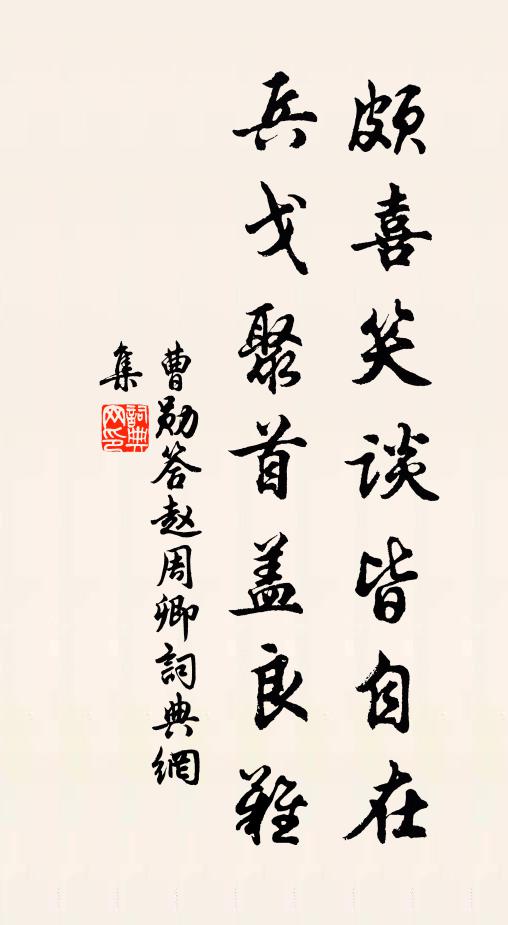 颇喜笑谈皆自在
兵戈聚首盖良难
曹勋答赵周卿詞典網
集
詞典网印